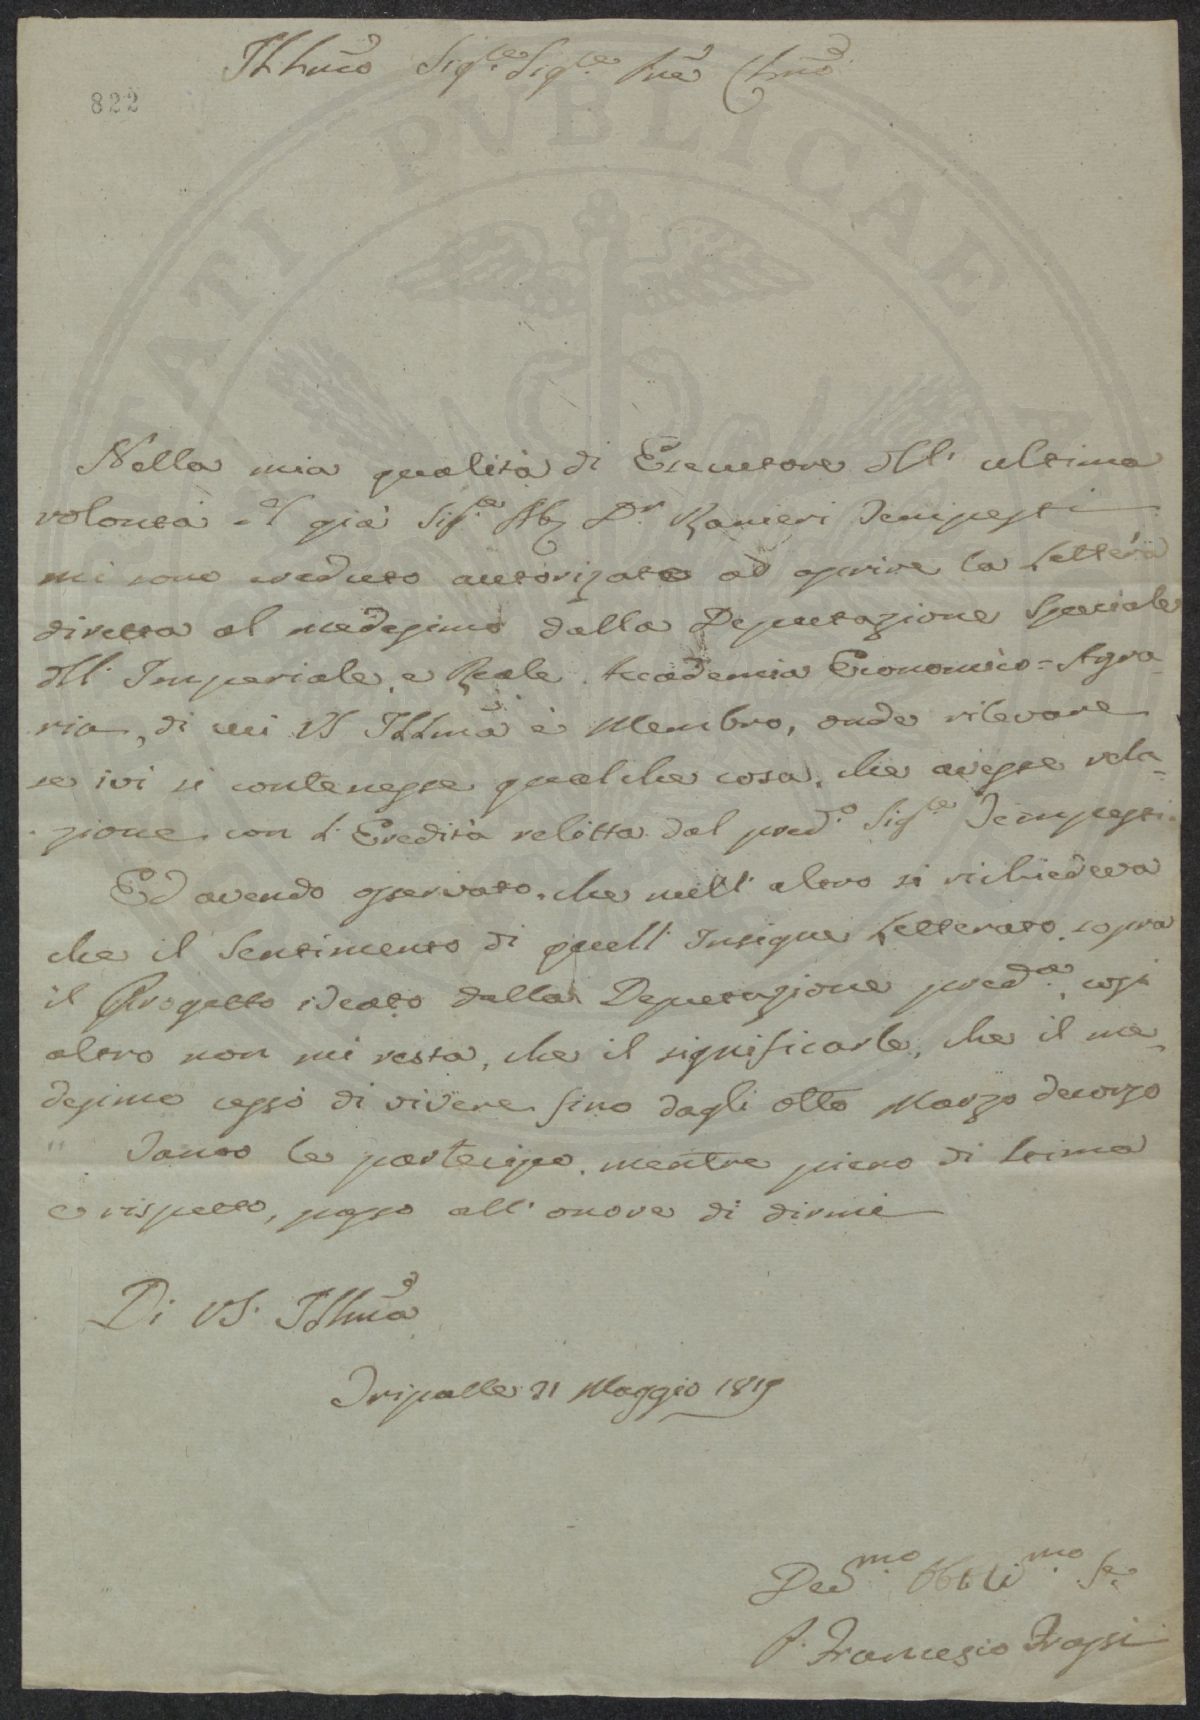 Illmo Sigre Sigre Pne Clmo
822
Nella mia qualità di Esecutore dll' ultima
volontà del già Sigre Ab. Dr. Ranieri Tempesti
mi sono creduto autorizato ad aprire la Lettera
diretta al medesimo dalla Deputazione Speciale
dll' Imperiale, e Reale Accademia Economico=Agra-
ria, di cui VS Illma è Membro, onde rilevare
se ivi si contenesse qualche cosa, che avesse rela=
zione con l'Eredità relitta dal predo. Sigre Tempesti.
Ed avendo osservato, che null' altro si richiedeva
che il Sentimento di quell' Insigne Letterato sopra
il Progetto ideato dalla Deputazione preda, così
altro non mi resta, che il significarle, che il me-
desimo cessò di vivere fino dagli otto Marzo decorso
Tanto le partecipo, mentre pieno di stima
e rispetto, passo all' onore di dirmi
Di VS. Illma
Tripalle 21 Maggio 1819
Dedmo. Obblimo. Se.
P. Francesco Frassi
PVBLICAE